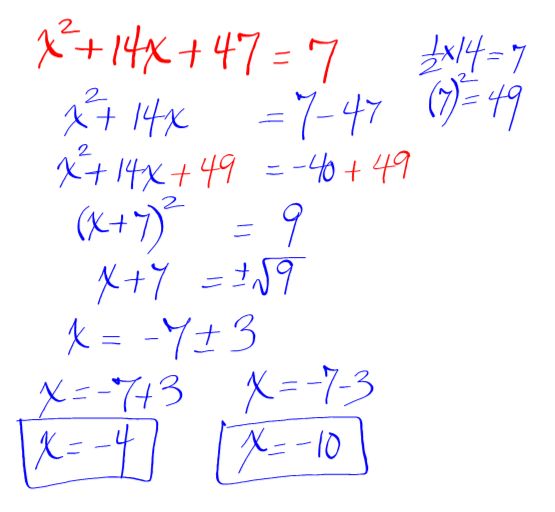 x² + 14x + 47 = 7
½ x 14 = 7
(7)² = 49
x² + 14x = 7 - 47
x² + 14x + 49 = -40 + 49
(x + 7)² = 9
x + 7 = ±√9
x = -7 ± 3
x = -7+3 x = -7-3
x = -4 x = -10